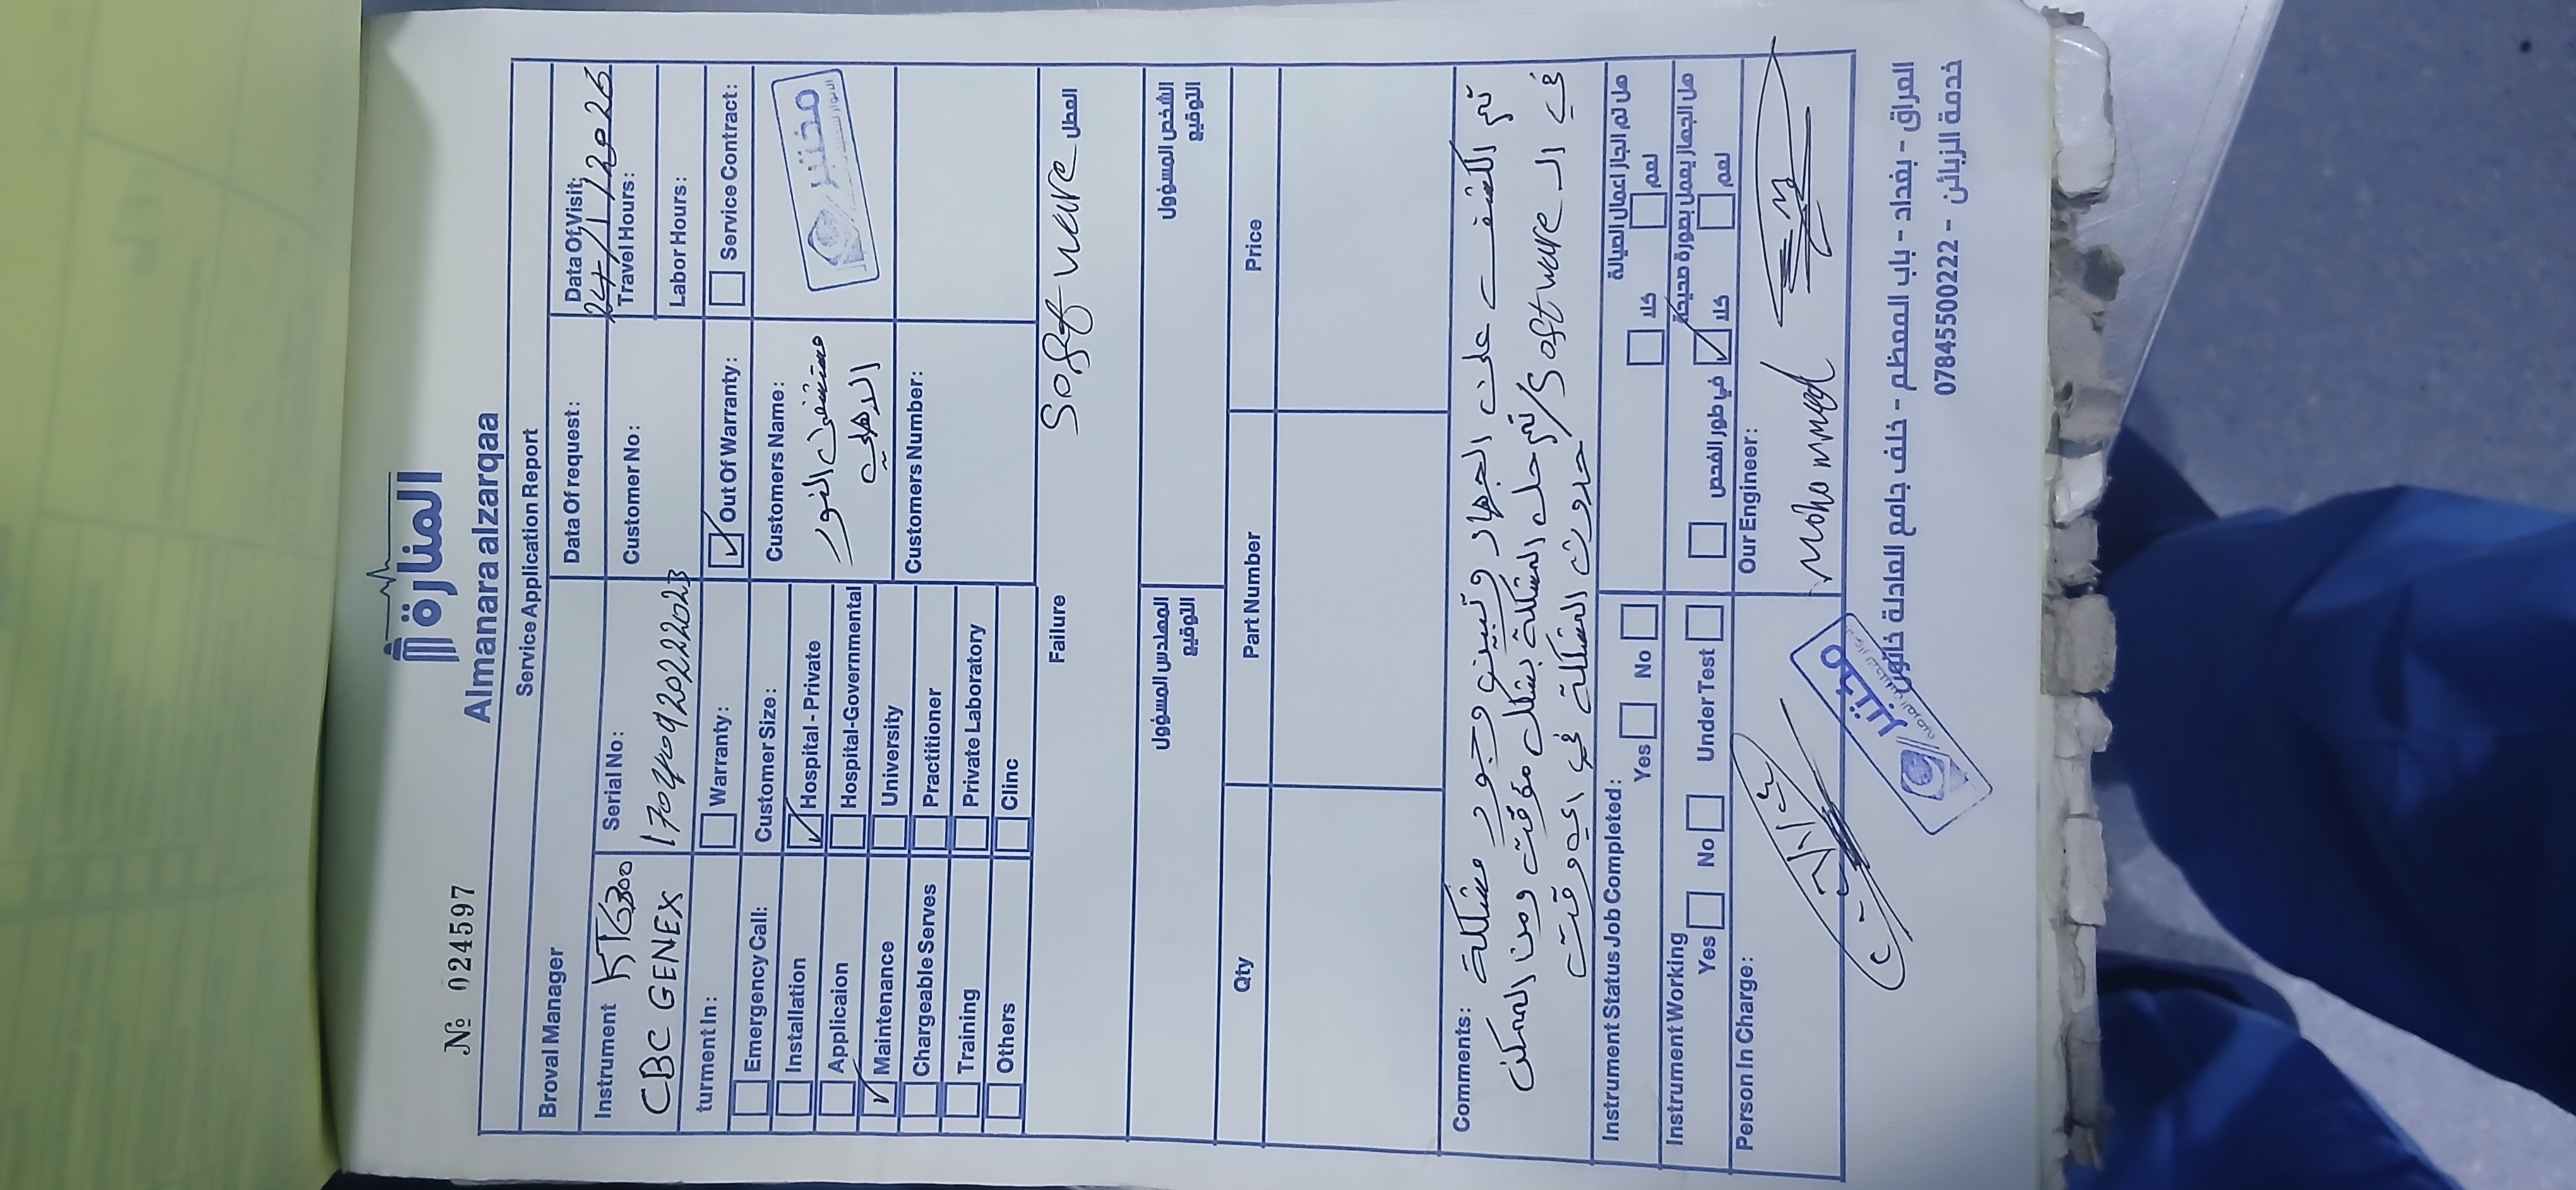 № 024597
المنارة
Almanara alzarqaa
Service Application Report
Broval Manager
Data Of request:
Data Of Visit:
24/1/2026
Instrument KT6300
CBC GENEX
Serial No:
Customer No:
Travel Hours:
Labor Hours:
turment In:
Warranty:
Out Of Warranty:
Service Contract:
Emergency Call:
Installation
Applicaion
Maintenance
Chargeable Serves
Training
Others
Customer Size:
Hospital - Private
Hospital-Governmental
University
Practitioner
Private Laboratory
Clinc
Customers Name:
مستشفى النور
الاهلي
مختبر
Customers Number:
Failure
العطل
Software
المهندس المسؤول
التوقيع
الشخص المسؤول
التوقيع
Qty
Part Number
Price
Comments:
تم الكشف على الجهاز وتبين وجود مشكلة
في ال Software / تم حل المشكلة بشكل مؤقت ومن الممكن
حدوث المشكلة في اي وقت
Instrument Status Job Completed:
Yes
No
هل تم انجاز اعمال الصيانة
نعم
كلا
Instrument Working
Yes
No
Under Test
هل الجهاز يعمل بصورة صحيحة
نعم
كلا
في طور الفحص
Person In Charge:
Our Engineer:
Mohommed
مختبر
العراق - بغداد - باب المعظم - خلف جامع العادلة خاتون
خدمة الزبائن - 07845500222